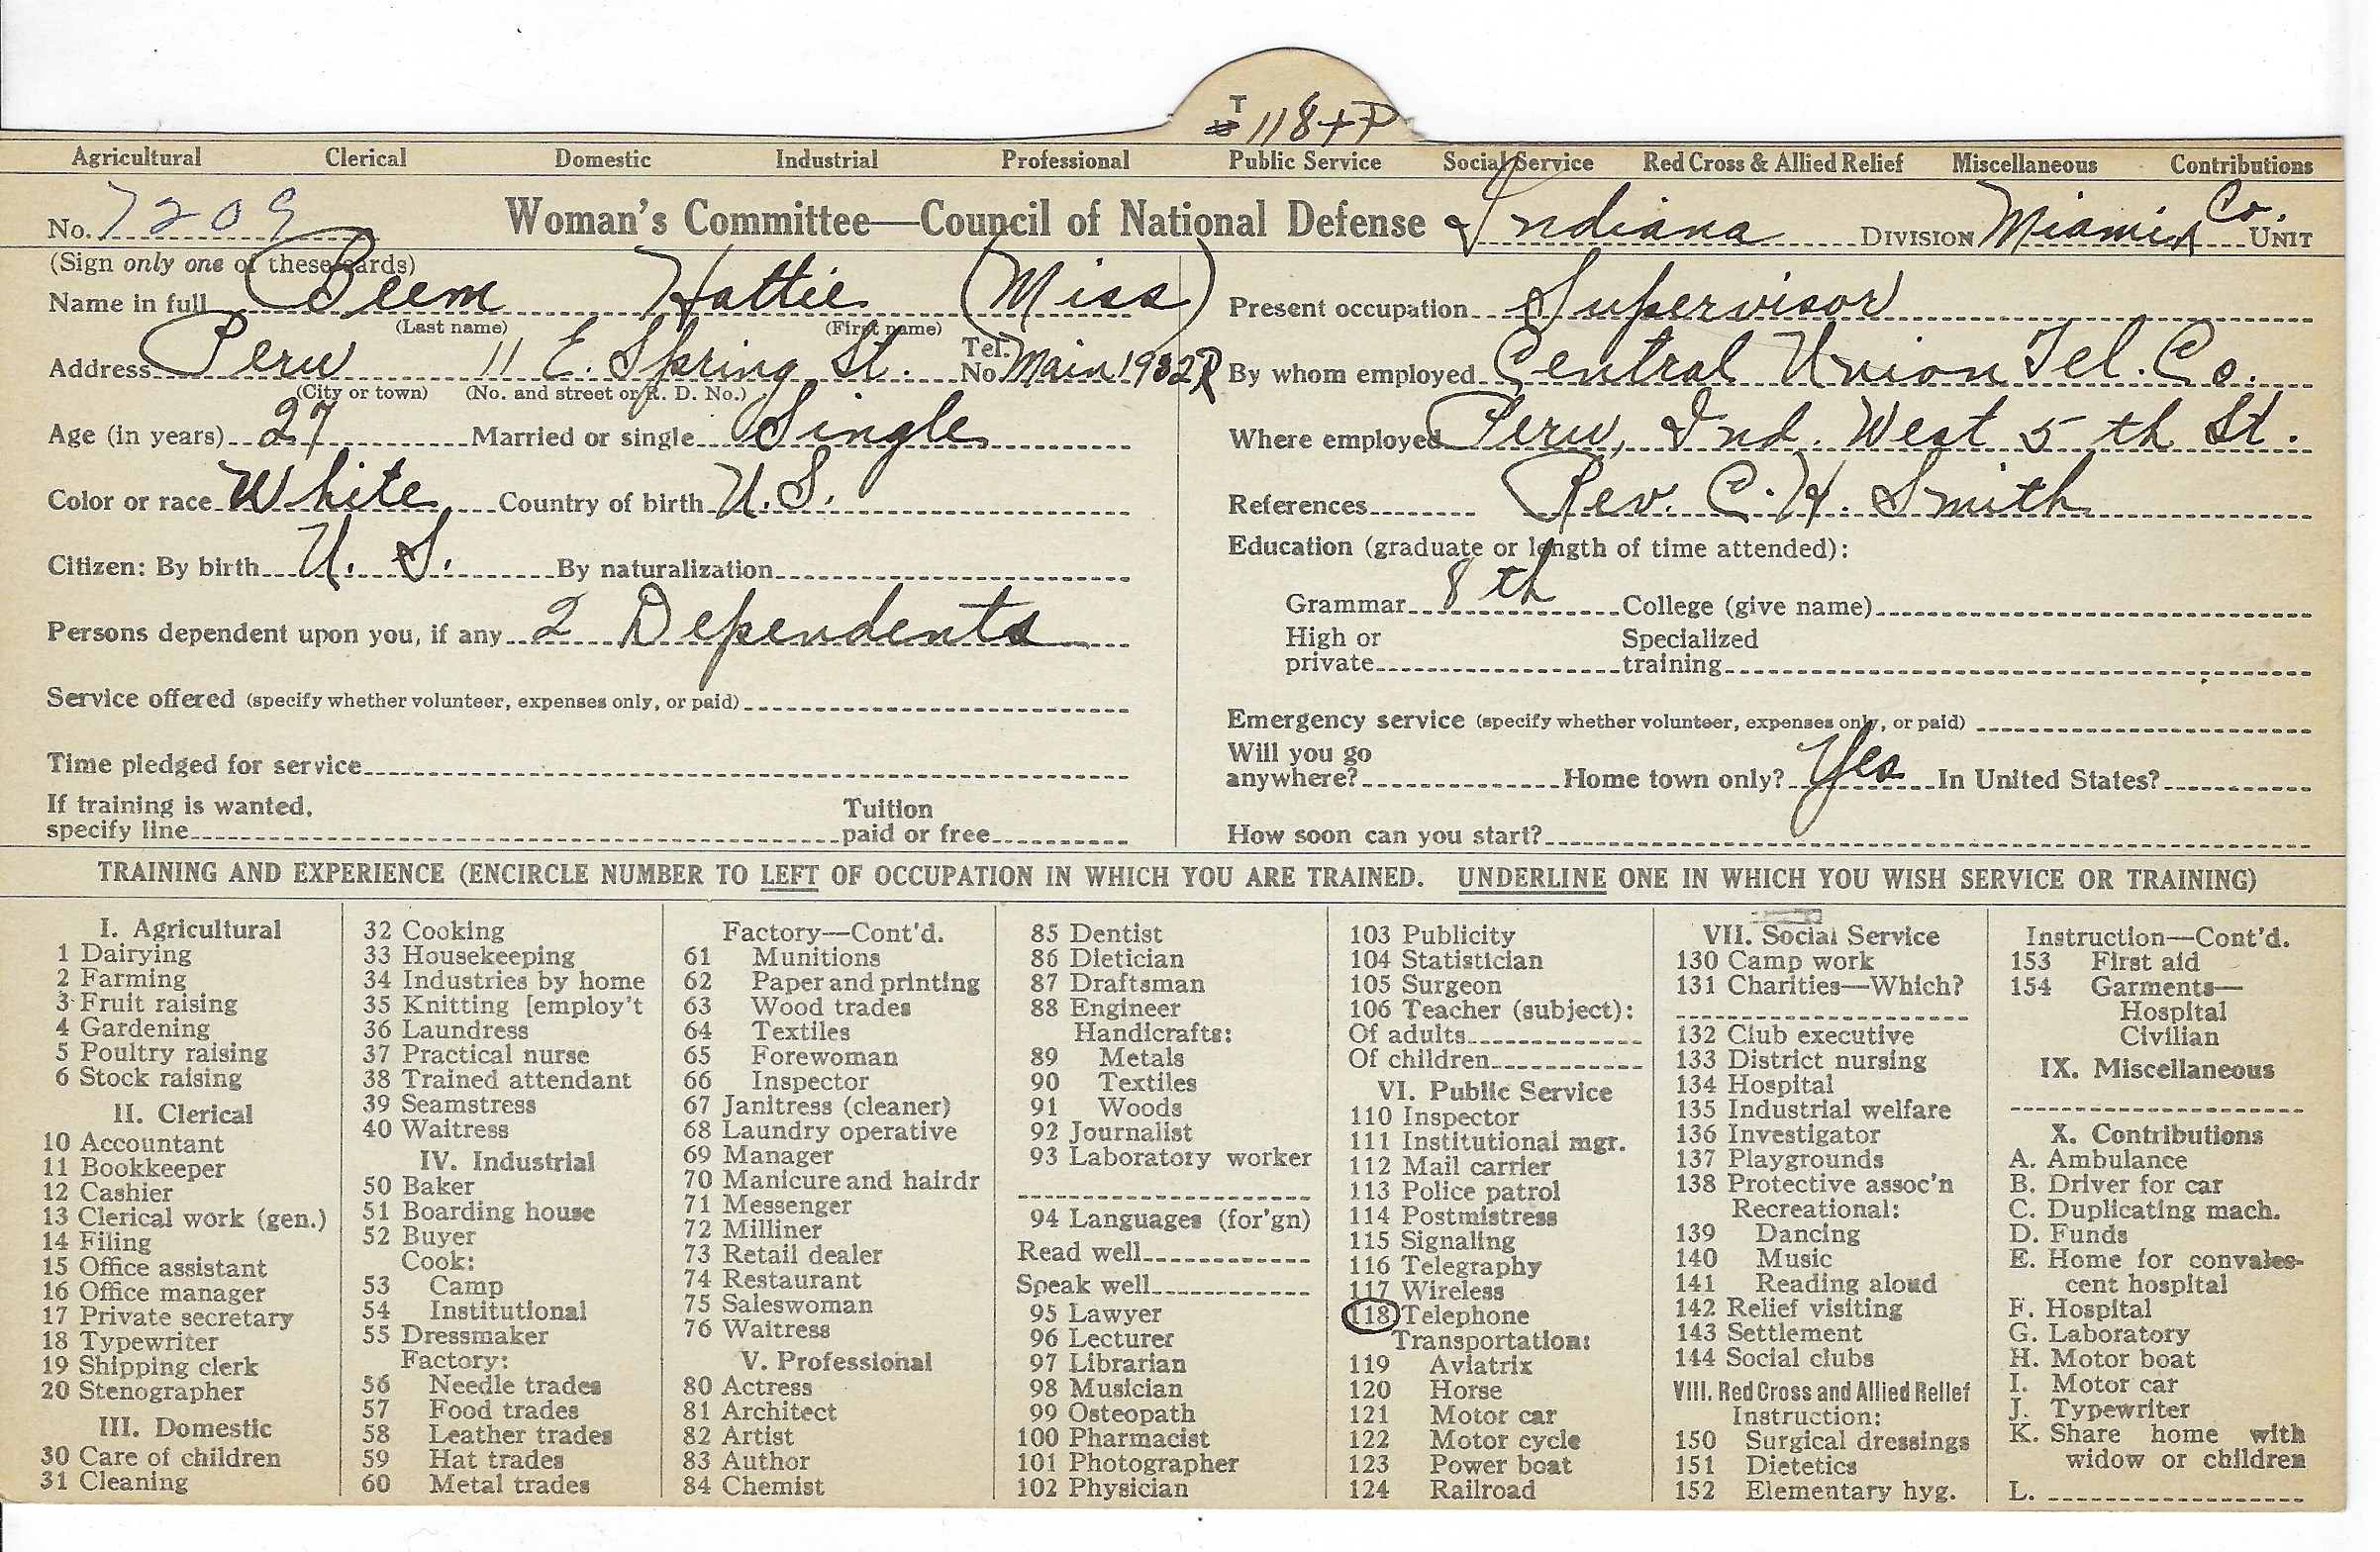 T
# 118 + P
Agricultural Clerical Domestic Industrial Professional Public Service Social Service Red Cross & Allied Relief Miscellaneous Contributions
No. 7209 Woman's Committee—Council of National Defense Indiana DIVISION Miami Co. UNIT
(Sign only one of these cards)
Name in full Beem Hattie (Miss)
(Last name) (First name)
Address Peru 11 E. Spring St. Tel. No. Main 1932R
(City or town) (No. and street or R. D. No.)
Age (in years) 27 Married or single Single
Color or race White Country of birth U.S.
Citizen: By birth U. S. By naturalization
Persons dependent upon you, if any 2 Dependents
Service offered (specify whether volunteer, expenses only, or paid)
Time pledged for service
If training is wanted, specify line Tuition paid or free
Present occupation Supervisor
By whom employed Central Union Tel. Co.
Where employed Peru, Ind. West 5th St.
References Rev. C. H. Smith
Education (graduate or length of time attended):
Grammar 8th College (give name)
High or private Specialized training
Emergency service (specify whether volunteer, expenses only, or paid)
Will you go anywhere? Home town only? Yes In United States?
How soon can you start?
TRAINING AND EXPERIENCE (ENCIRCLE NUMBER TO LEFT OF OCCUPATION IN WHICH YOU ARE TRAINED. UNDERLINE ONE IN WHICH YOU WISH SERVICE OR TRAINING)
I. Agricultural
1 Dairying
2 Farming
3 Fruit raising
4 Gardening
5 Poultry raising
6 Stock raising
II. Clerical
10 Accountant
11 Bookkeeper
12 Cashier
13 Clerical work (gen.)
14 Filing
15 Office assistant
16 Office manager
17 Private secretary
18 Typewriter
19 Shipping clerk
20 Stenographer
III. Domestic
30 Care of children
31 Cleaning
32 Cooking
33 Housekeeping
34 Industries by home
35 Knitting [employ't
36 Laundress
37 Practical nurse
38 Trained attendant
39 Seamstress
40 Waitress
IV. Industrial
50 Baker
51 Boarding house
52 Buyer
Cook:
53 Camp
54 Institutional
55 Dressmaker
Factory:
56 Needle trades
57 Food trades
58 Leather trades
59 Hat trades
60 Metal trades
Factory—Cont'd.
61 Munitions
62 Paper and printing
63 Wood trades
64 Textiles
65 Forewoman
66 Inspector
67 Janitress (cleaner)
68 Laundry operative
69 Manager
70 Manicure and hairdr
71 Messenger
72 Milliner
73 Retail dealer
74 Restaurant
75 Saleswoman
76 Waitress
V. Professional
80 Actress
81 Architect
82 Artist
83 Author
84 Chemist
85 Dentist
86 Dietician
87 Draftsman
88 Engineer
Handicrafts:
89 Metals
90 Textiles
91 Woods
92 Journalist
93 Laboratory worker
94 Languages (for'gn)
Read well
Speak well
95 Lawyer
96 Lecturer
97 Librarian
98 Musician
99 Osteopath
100 Pharmacist
101 Photographer
102 Physician
103 Publicity
104 Statistician
105 Surgeon
106 Teacher (subject):
Of adults
Of children
VI. Public Service
110 Inspector
111 Institutional mgr.
112 Mail carrier
113 Police patrol
114 Postmistress
115 Signaling
116 Telegraphy
117 Wireless
118 Telephone
Transportation:
119 Aviatrix
120 Horse
121 Motor car
122 Motor cycle
123 Power boat
124 Railroad
VII. Social Service
130 Camp work
131 Charities—Which?
132 Club executive
133 District nursing
134 Hospital
135 Industrial welfare
136 Investigator
137 Playgrounds
138 Protective assoc'n
Recreational:
139 Dancing
140 Music
141 Reading aloud
142 Relief visiting
143 Settlement
144 Social clubs
VIII. Red Cross and Allied Relief
Instruction:
150 Surgical dressings
151 Dietetics
152 Elementary hyg.
Instruction—Cont'd.
153 First aid
154 Garments—
Hospital
Civilian
IX. Miscellaneous
X. Contributions
A. Ambulance
B. Driver for car
C. Duplicating mach.
D. Funds
E. Home for convales-
cent hospital
F. Hospital
G. Laboratory
H. Motor boat
I. Motor car
J. Typewriter
K. Share home with
widow or children
L.